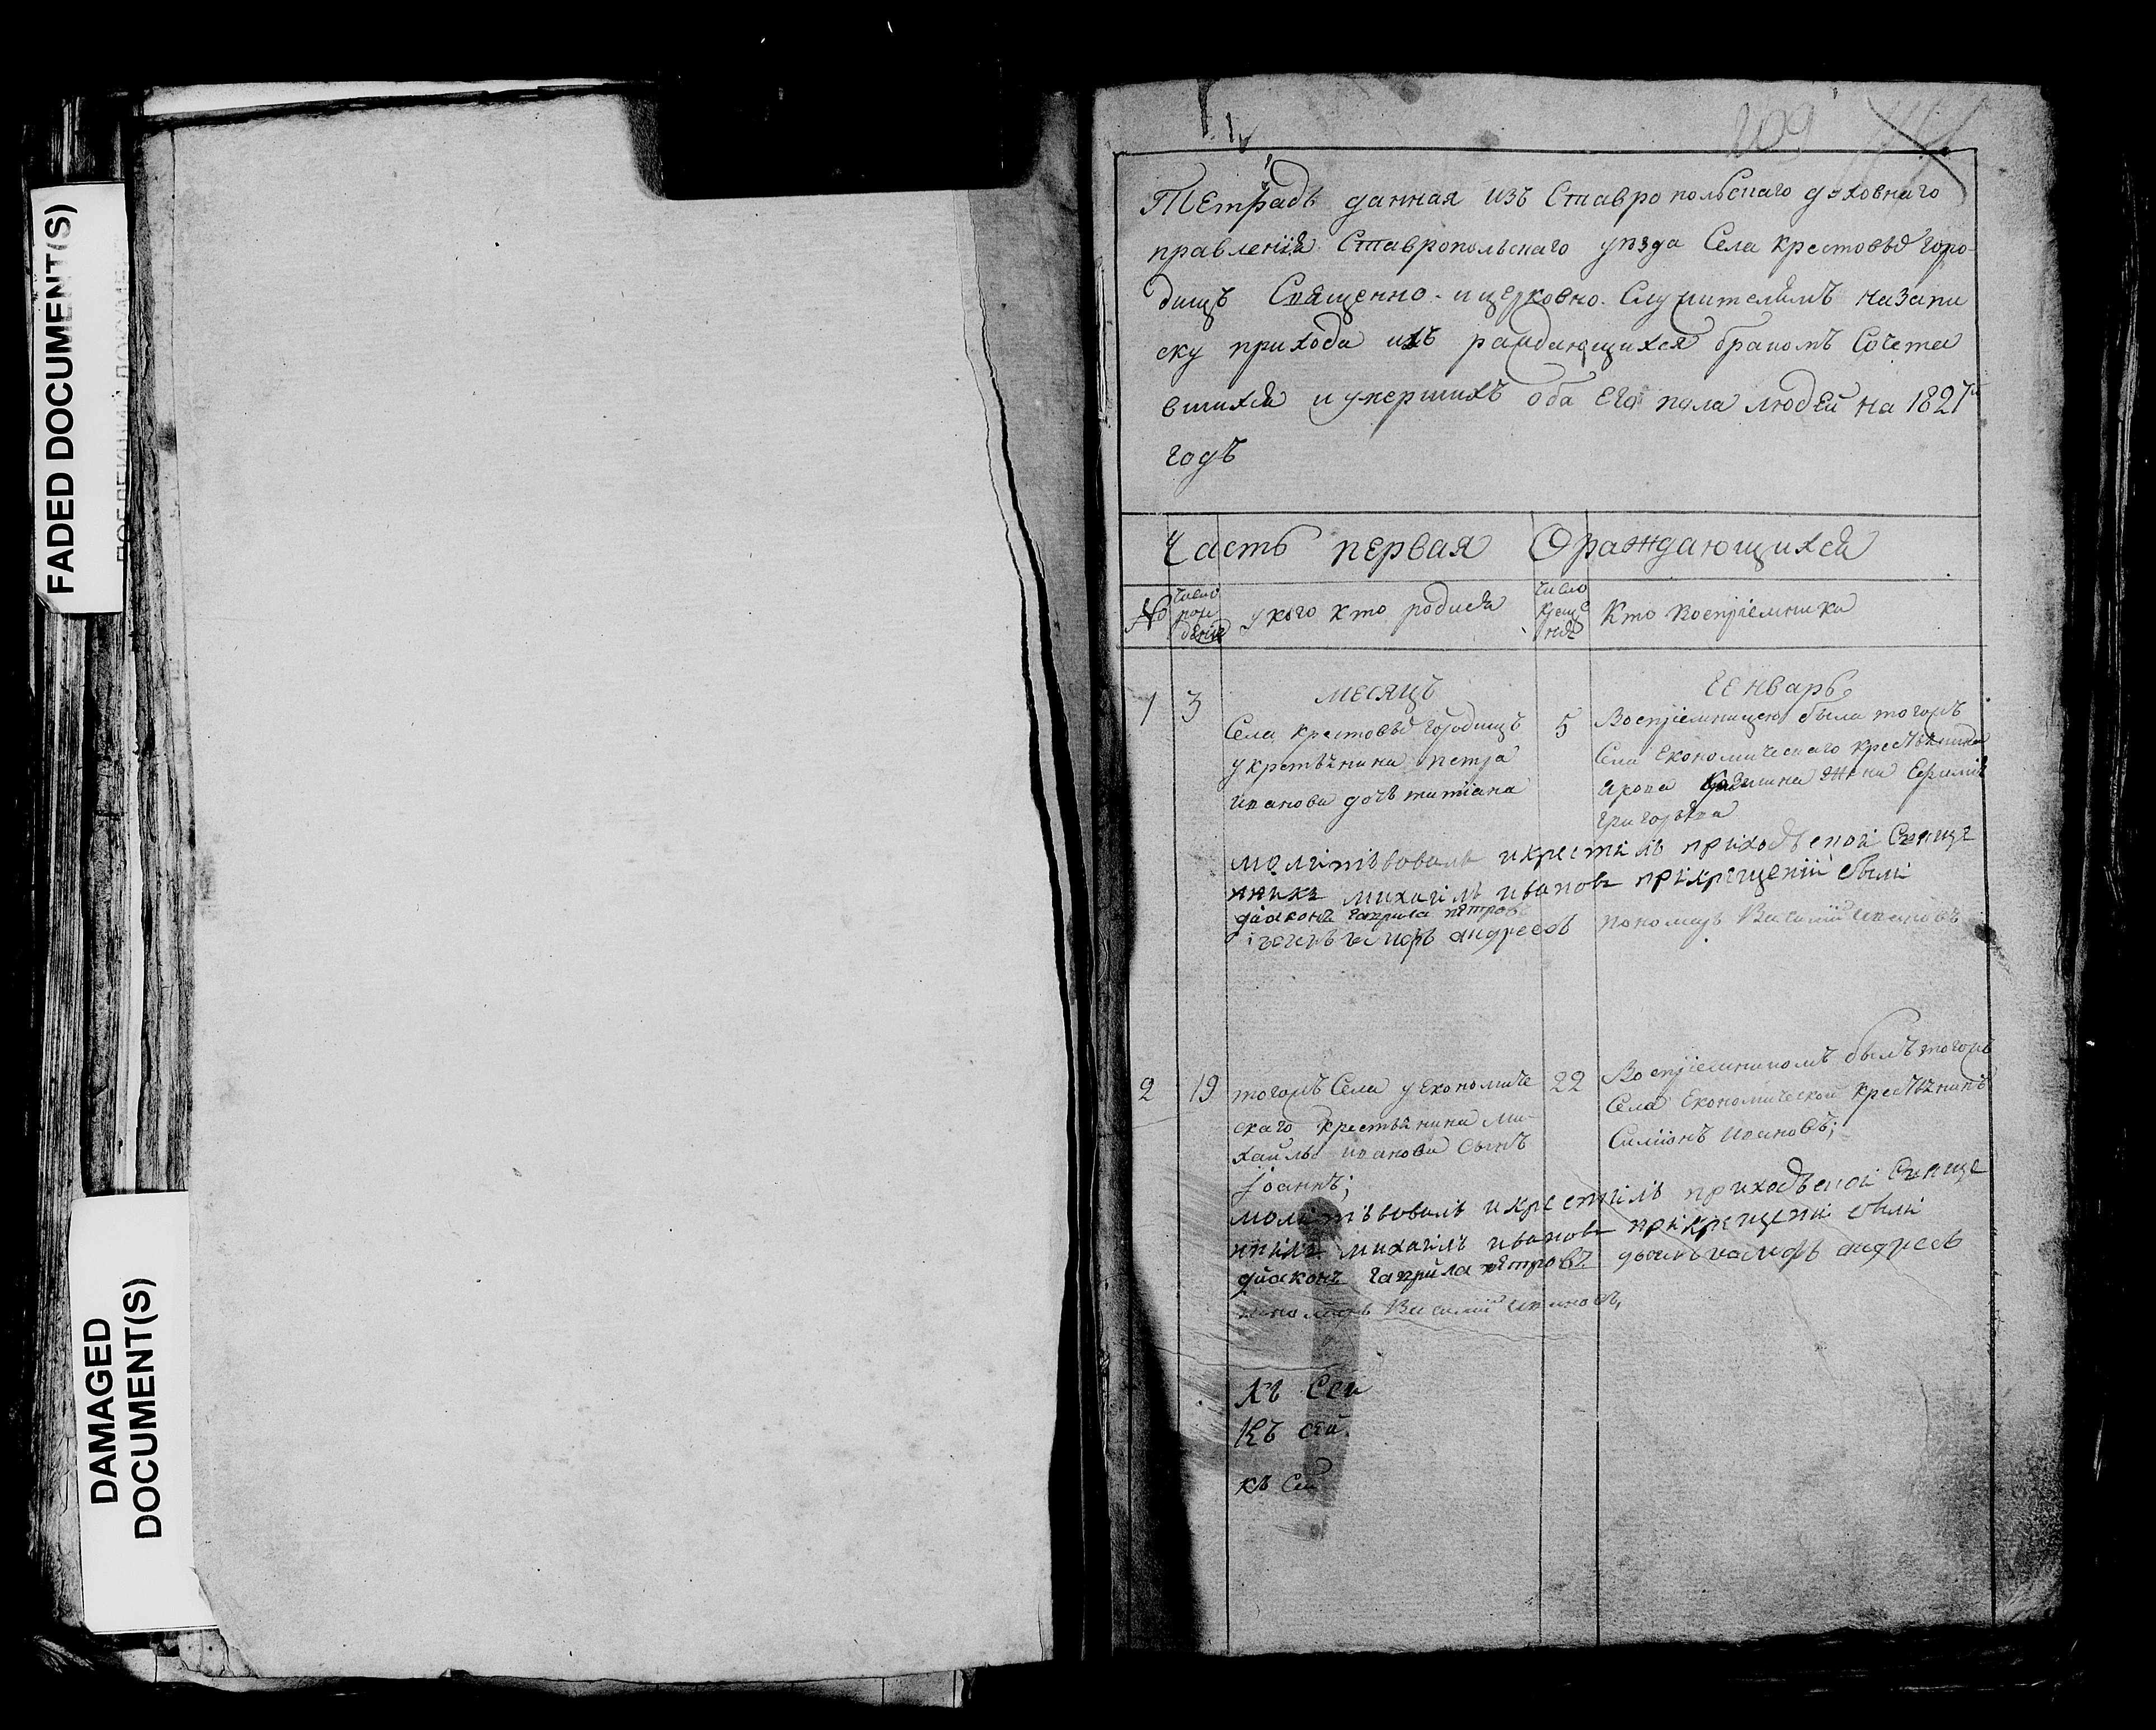 FADED DOCUMENT(S)
DAMAGED
DOCUMENT(S)
209
Тетрадь данная изъ Ставропольскаго духовнаго
правленія Ставропольскаго уѣзда Села крестовыхъ горо
дищъ Священно-и церковно-Служителямъ на запи
ску прихода ихъ раждающихся бракомъ Сочета
вшихся и умершихъ обаего пола людей на 1821й
годъ
Часть первая О раждающихся
№
Число
рож
денія
у кого кто родися
Число
креще
нія
Кто Воспріемники
месяцъ
Генварь
1
3
Села крестовыхъ городищъ
у крестьянина петра
иванова дочь татіана
5
Воспріемницею была тогожъ
Села Економическаго крестьянина
жена
григорьева
молитвовалъ и крестилъ приходской Священ
никъ михаилъ ивановъ при крещеніи были
діаконъ гаврила петровъ
андреевъ
пономарь Василій ивановъ
2
19
тогожъ Села у Економиче
скаго крестьянина ми-
хайлы иванова Сынъ
Іоаннъ;
22
Воспріемникомъ былъ тогожъ
Села Економической крестьянинъ
Симіонъ ивановъ;
молитвовалъ и крестилъ приходской Священ
никъ михаилъ ивановъ при крещеніи были
діаконъ гаврила петровъ андреевъ
пономарь Василій ивановъ,
къ Сей
Къ сей
къ Сей